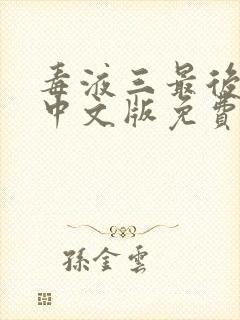 毒液三最後
中文版免費
孫金雲